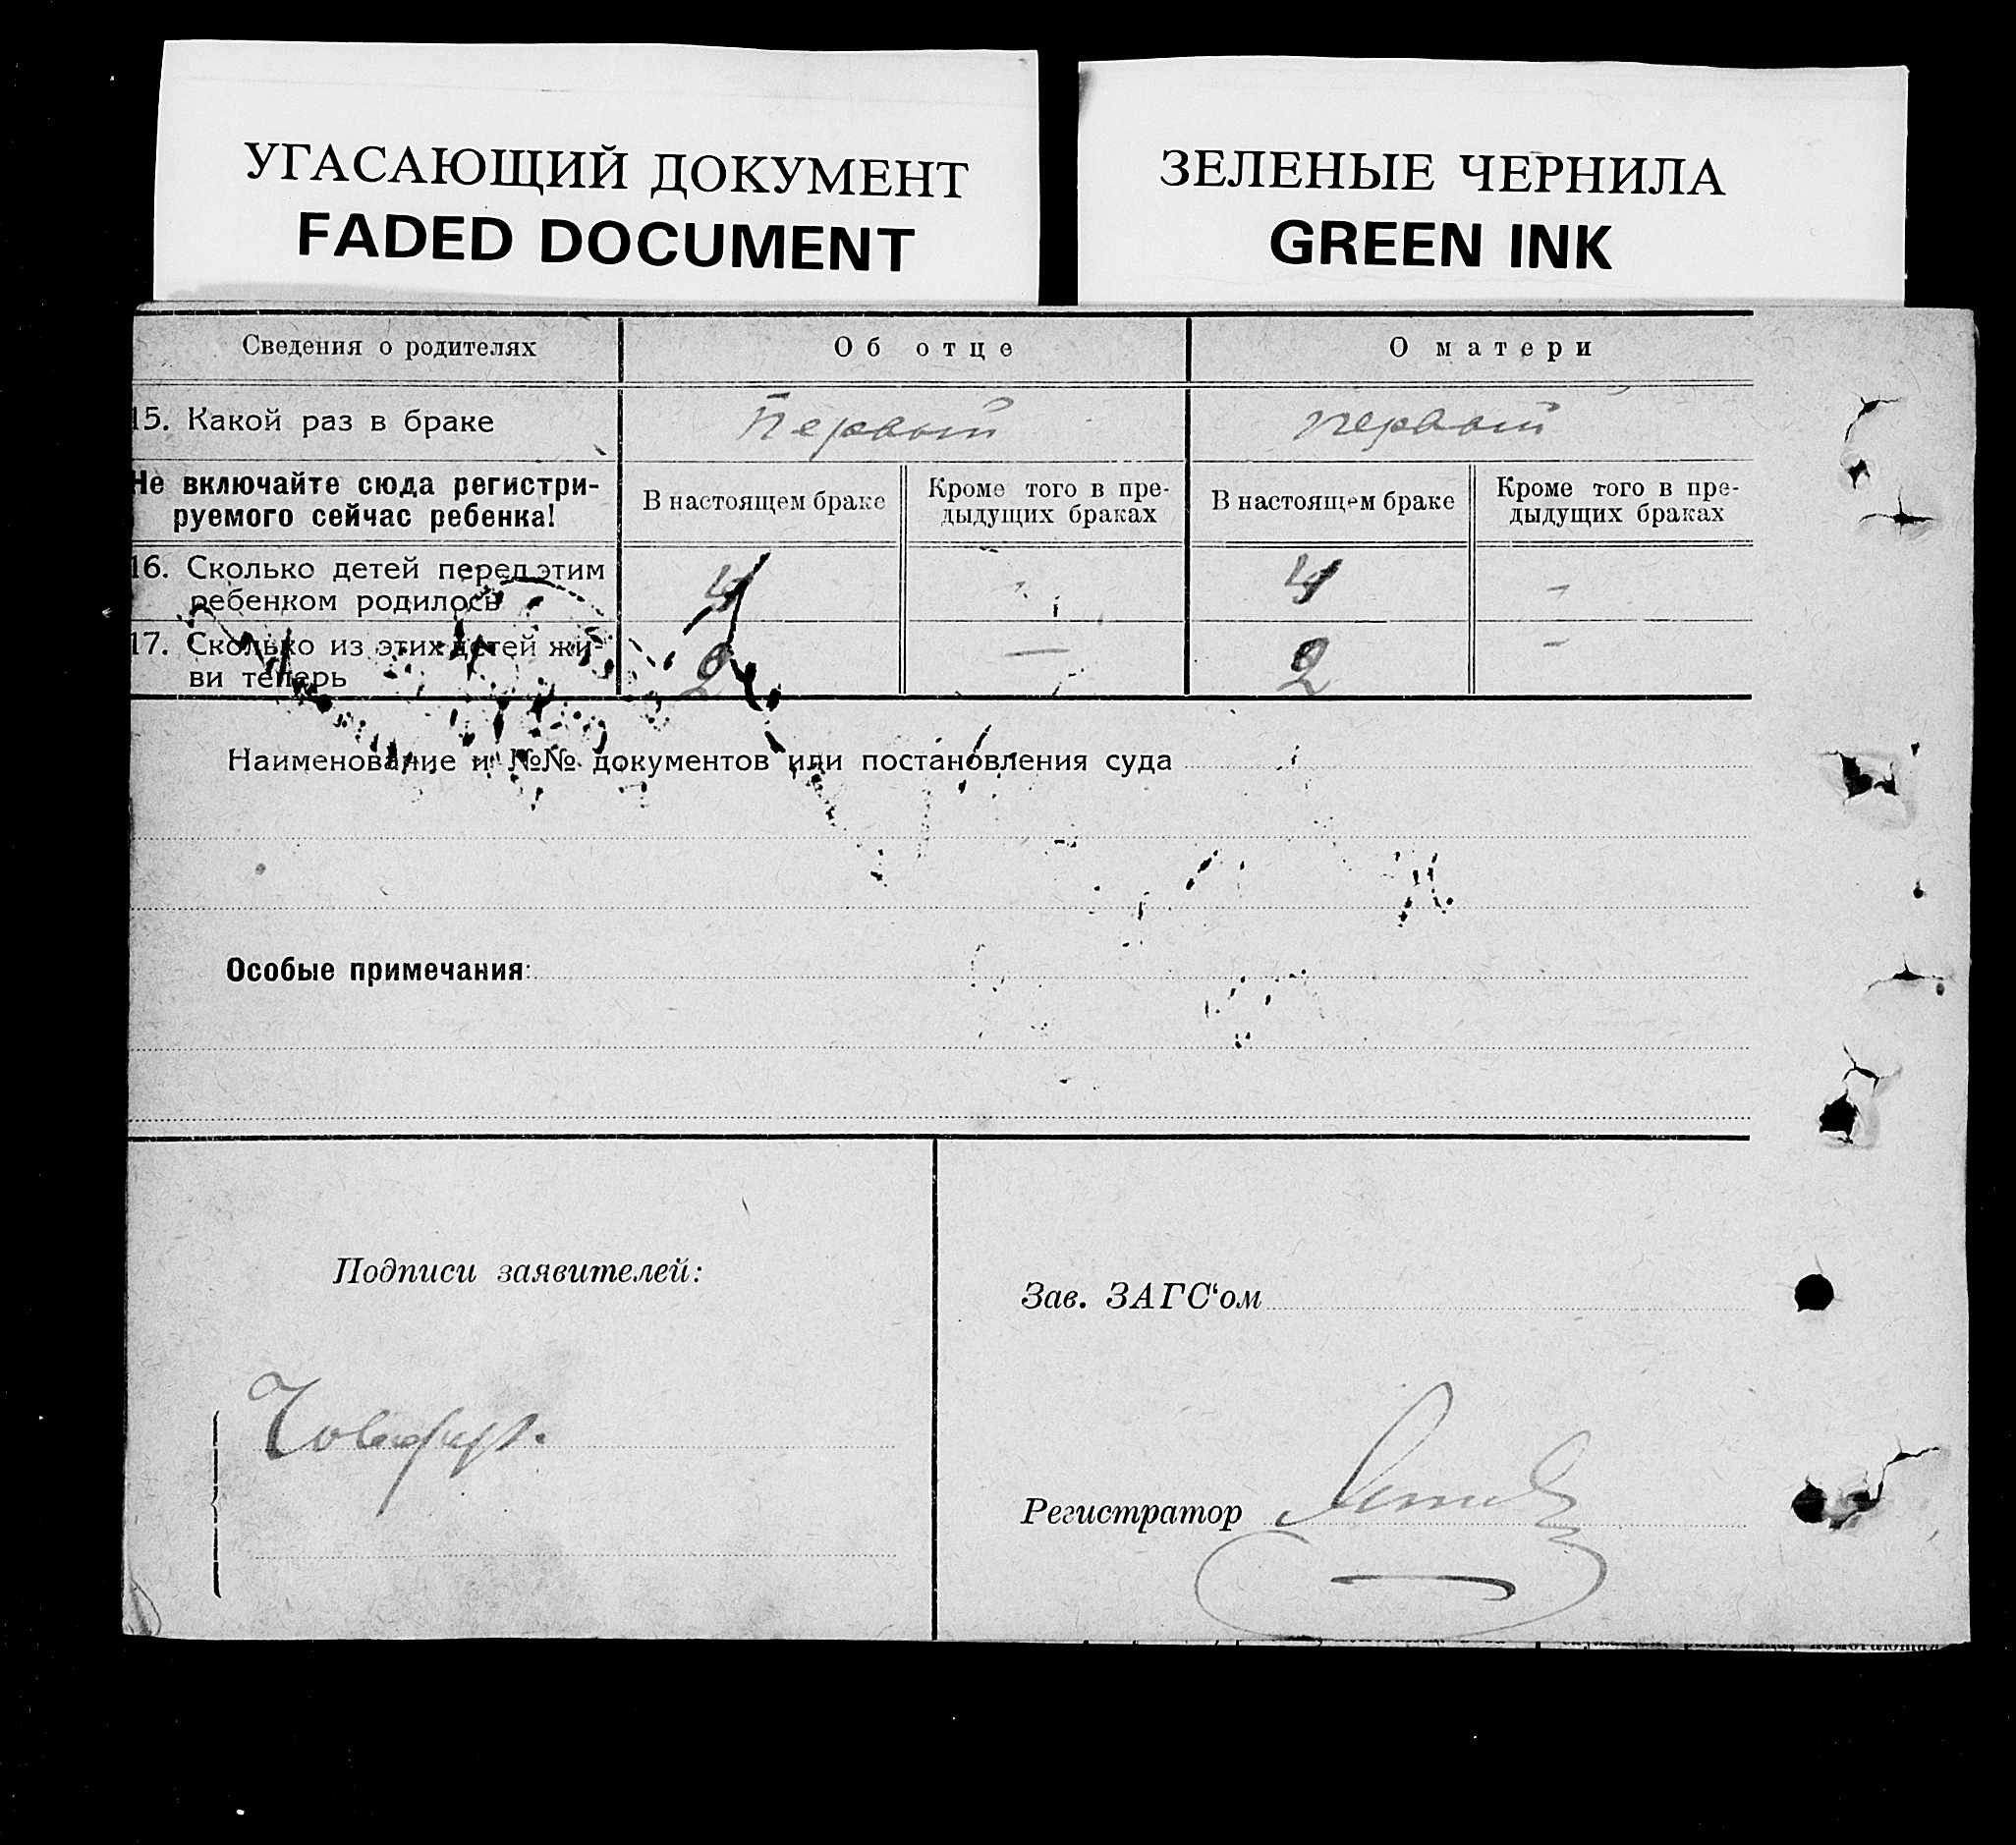 УГАСАЮЩИЙ ДОКУМЕНТ
FADED DOCUMENT
ЗЕЛЕНЫЕ ЧЕРНИЛА
GREEN INK
Сведения о родителях Об отце О матери
15. Какой раз в браке Первый первый
Не включайте сюда регистри-
руемого сейчас ребенка!
В настоящем браке
Кроме того в пре-
дыдущих браках
В настоящем браке
Кроме того в пре-
дыдущих браках
16. Сколько детей перед этим
ребенком родилось
4 4 -
17. Сколько из этих детей жи-
ви теперь
2 — 2 -
Наименование и №№ документов или постановления суда
Особые примечания:
Подписи заявителей:
Зав. ЗАГС‘ом
Регистратор